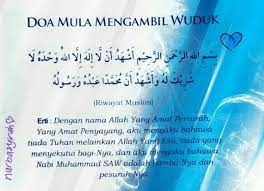 DOA MULA MENGAMBIL WUDUK
بِسْمِ اللهِ الرَّحْمَنِ الرَّحِيْمِ أَشْهَدُ أَنْ لَا إِلَهَ إِلَّا اللهُ وَحْدَهُ لَا
شَرِيْكَ لَهُ وَأَشْهَدُ أَنَّ مُحَمَّدًا عَبْدُهُ وَرَسُوْلُهُ
(Riwayat Muslim)
Erti : Dengan nama Allah Yang Amat Pemurah,
Yang Amat Penyayang, aku mengaku bahawa
tiada Tuhan melainkan Allah Yang Esa, tiada yang
menyekutui bagi-Nya, dan aku mengaku bahawa
Nabi Muhammad SAW adalah hamba-Nya dan
pesuruh-Nya.